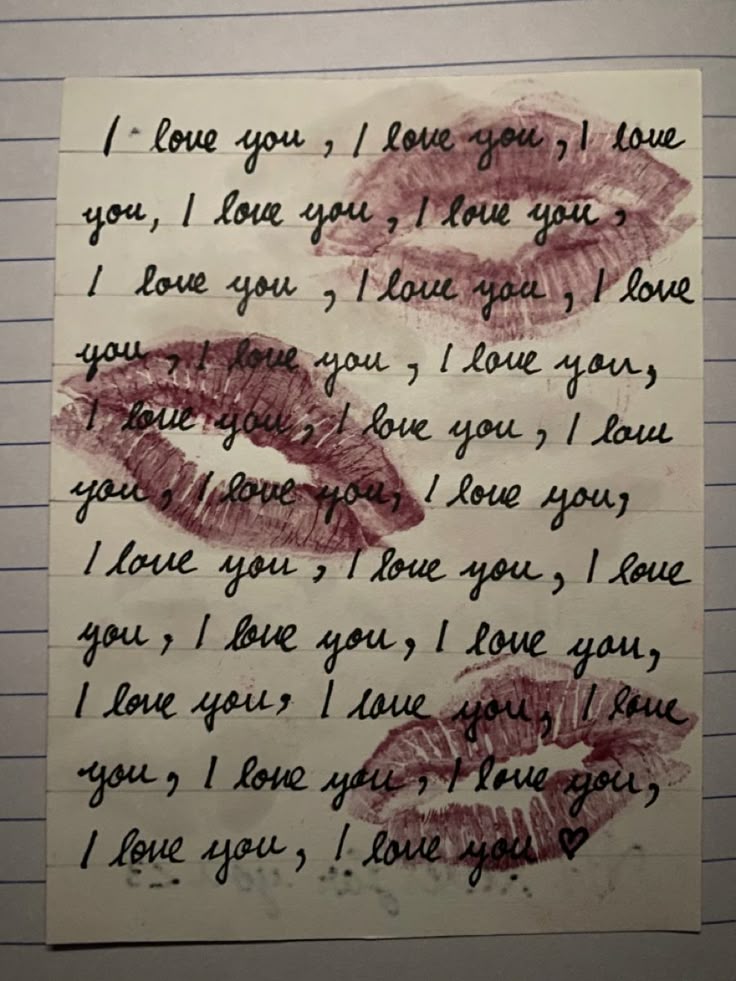 I love you, I love you, I love
you, I love you, I love you,
I love you, I love you, I love
you, I love you, I love you,
I love you, I love you, I love
you, I love you, I love you,
I love you, I love you, I love
you, I love you, I love you,
I love you, I love you, I love
you, I love you, I love you,
I love you, I love you ♡